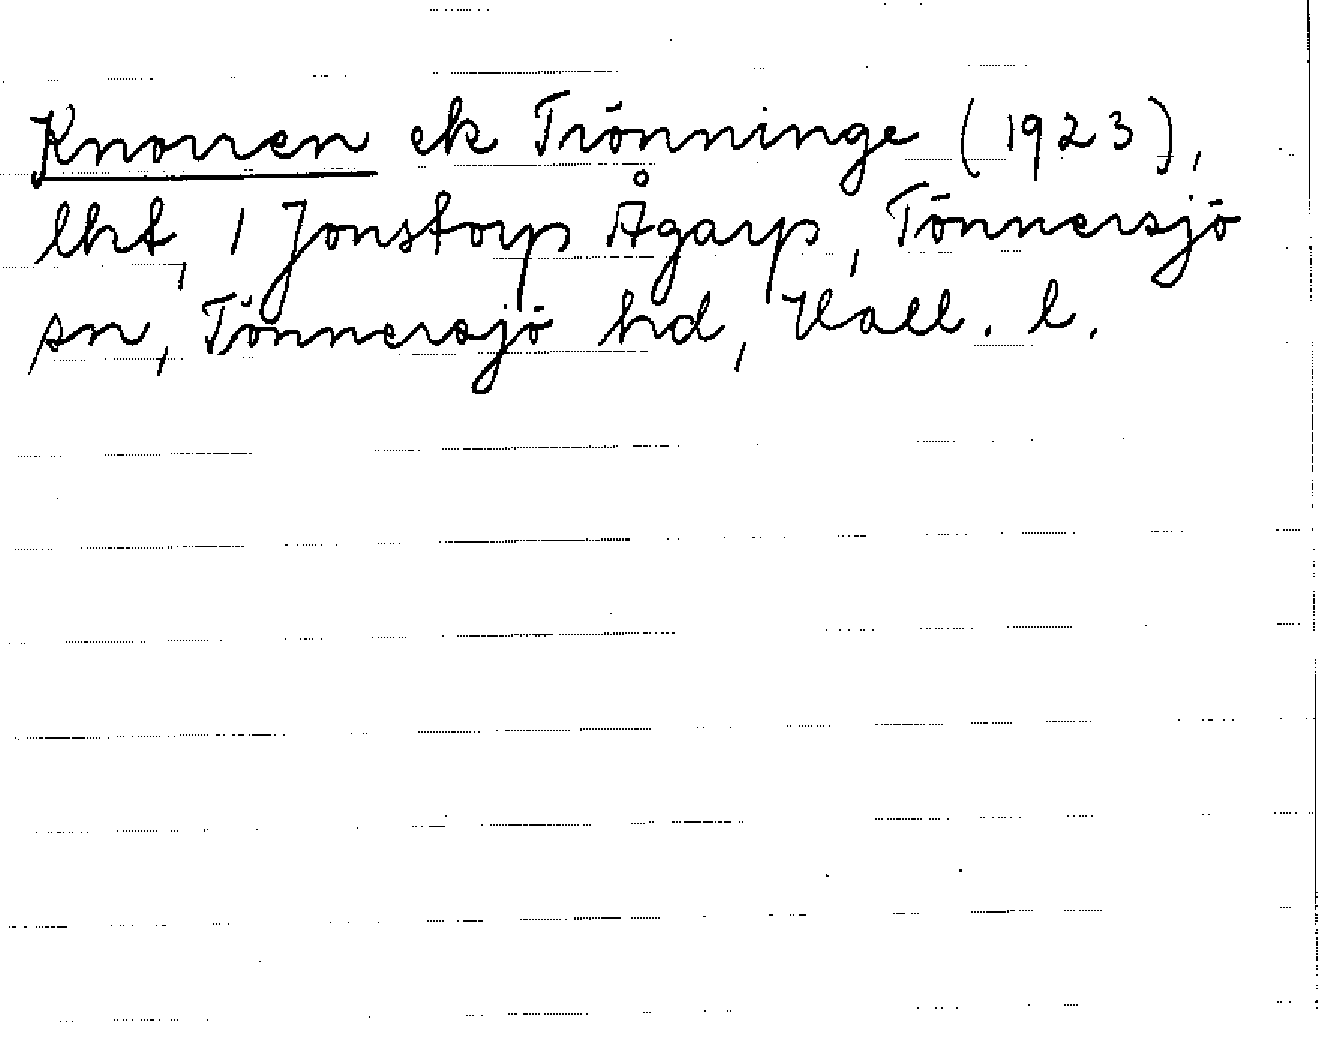 Knorren ek Trönninge (1923),
lht, 1 Jonstorp Ågarp, Tönnersjö
sn, Tönnersjö hd, Hall. l.